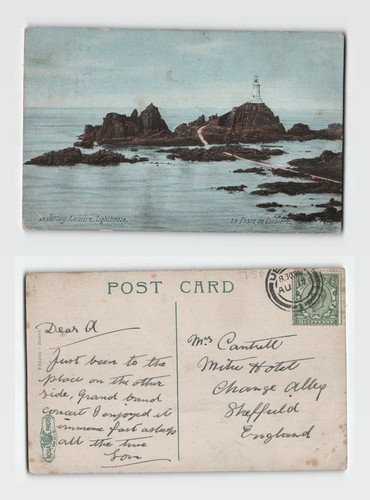 Jersey. Corbière, Lighthouse.
Le Phare de Corbière
POST CARD
8.30
AU
Dear A
Just been to the
place on the other
side, Grand band
concert I enjoyed it
immense fast asleep
all the time
Son
Mrs Cantrell
Mitre Hotel
Change Alley
Sheffield
England